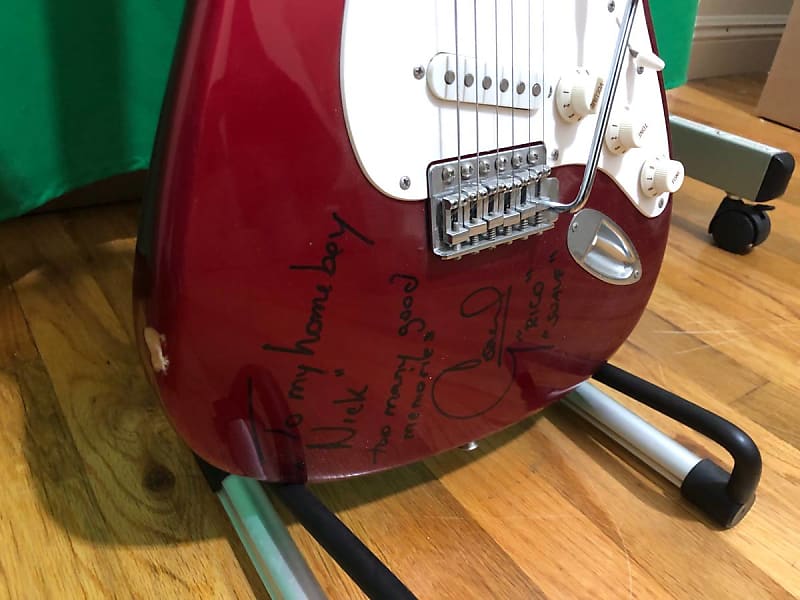 To my homeboy
Nick"
too many good
memories
"RICO"
"SUAVE"
VOLUME
TONE